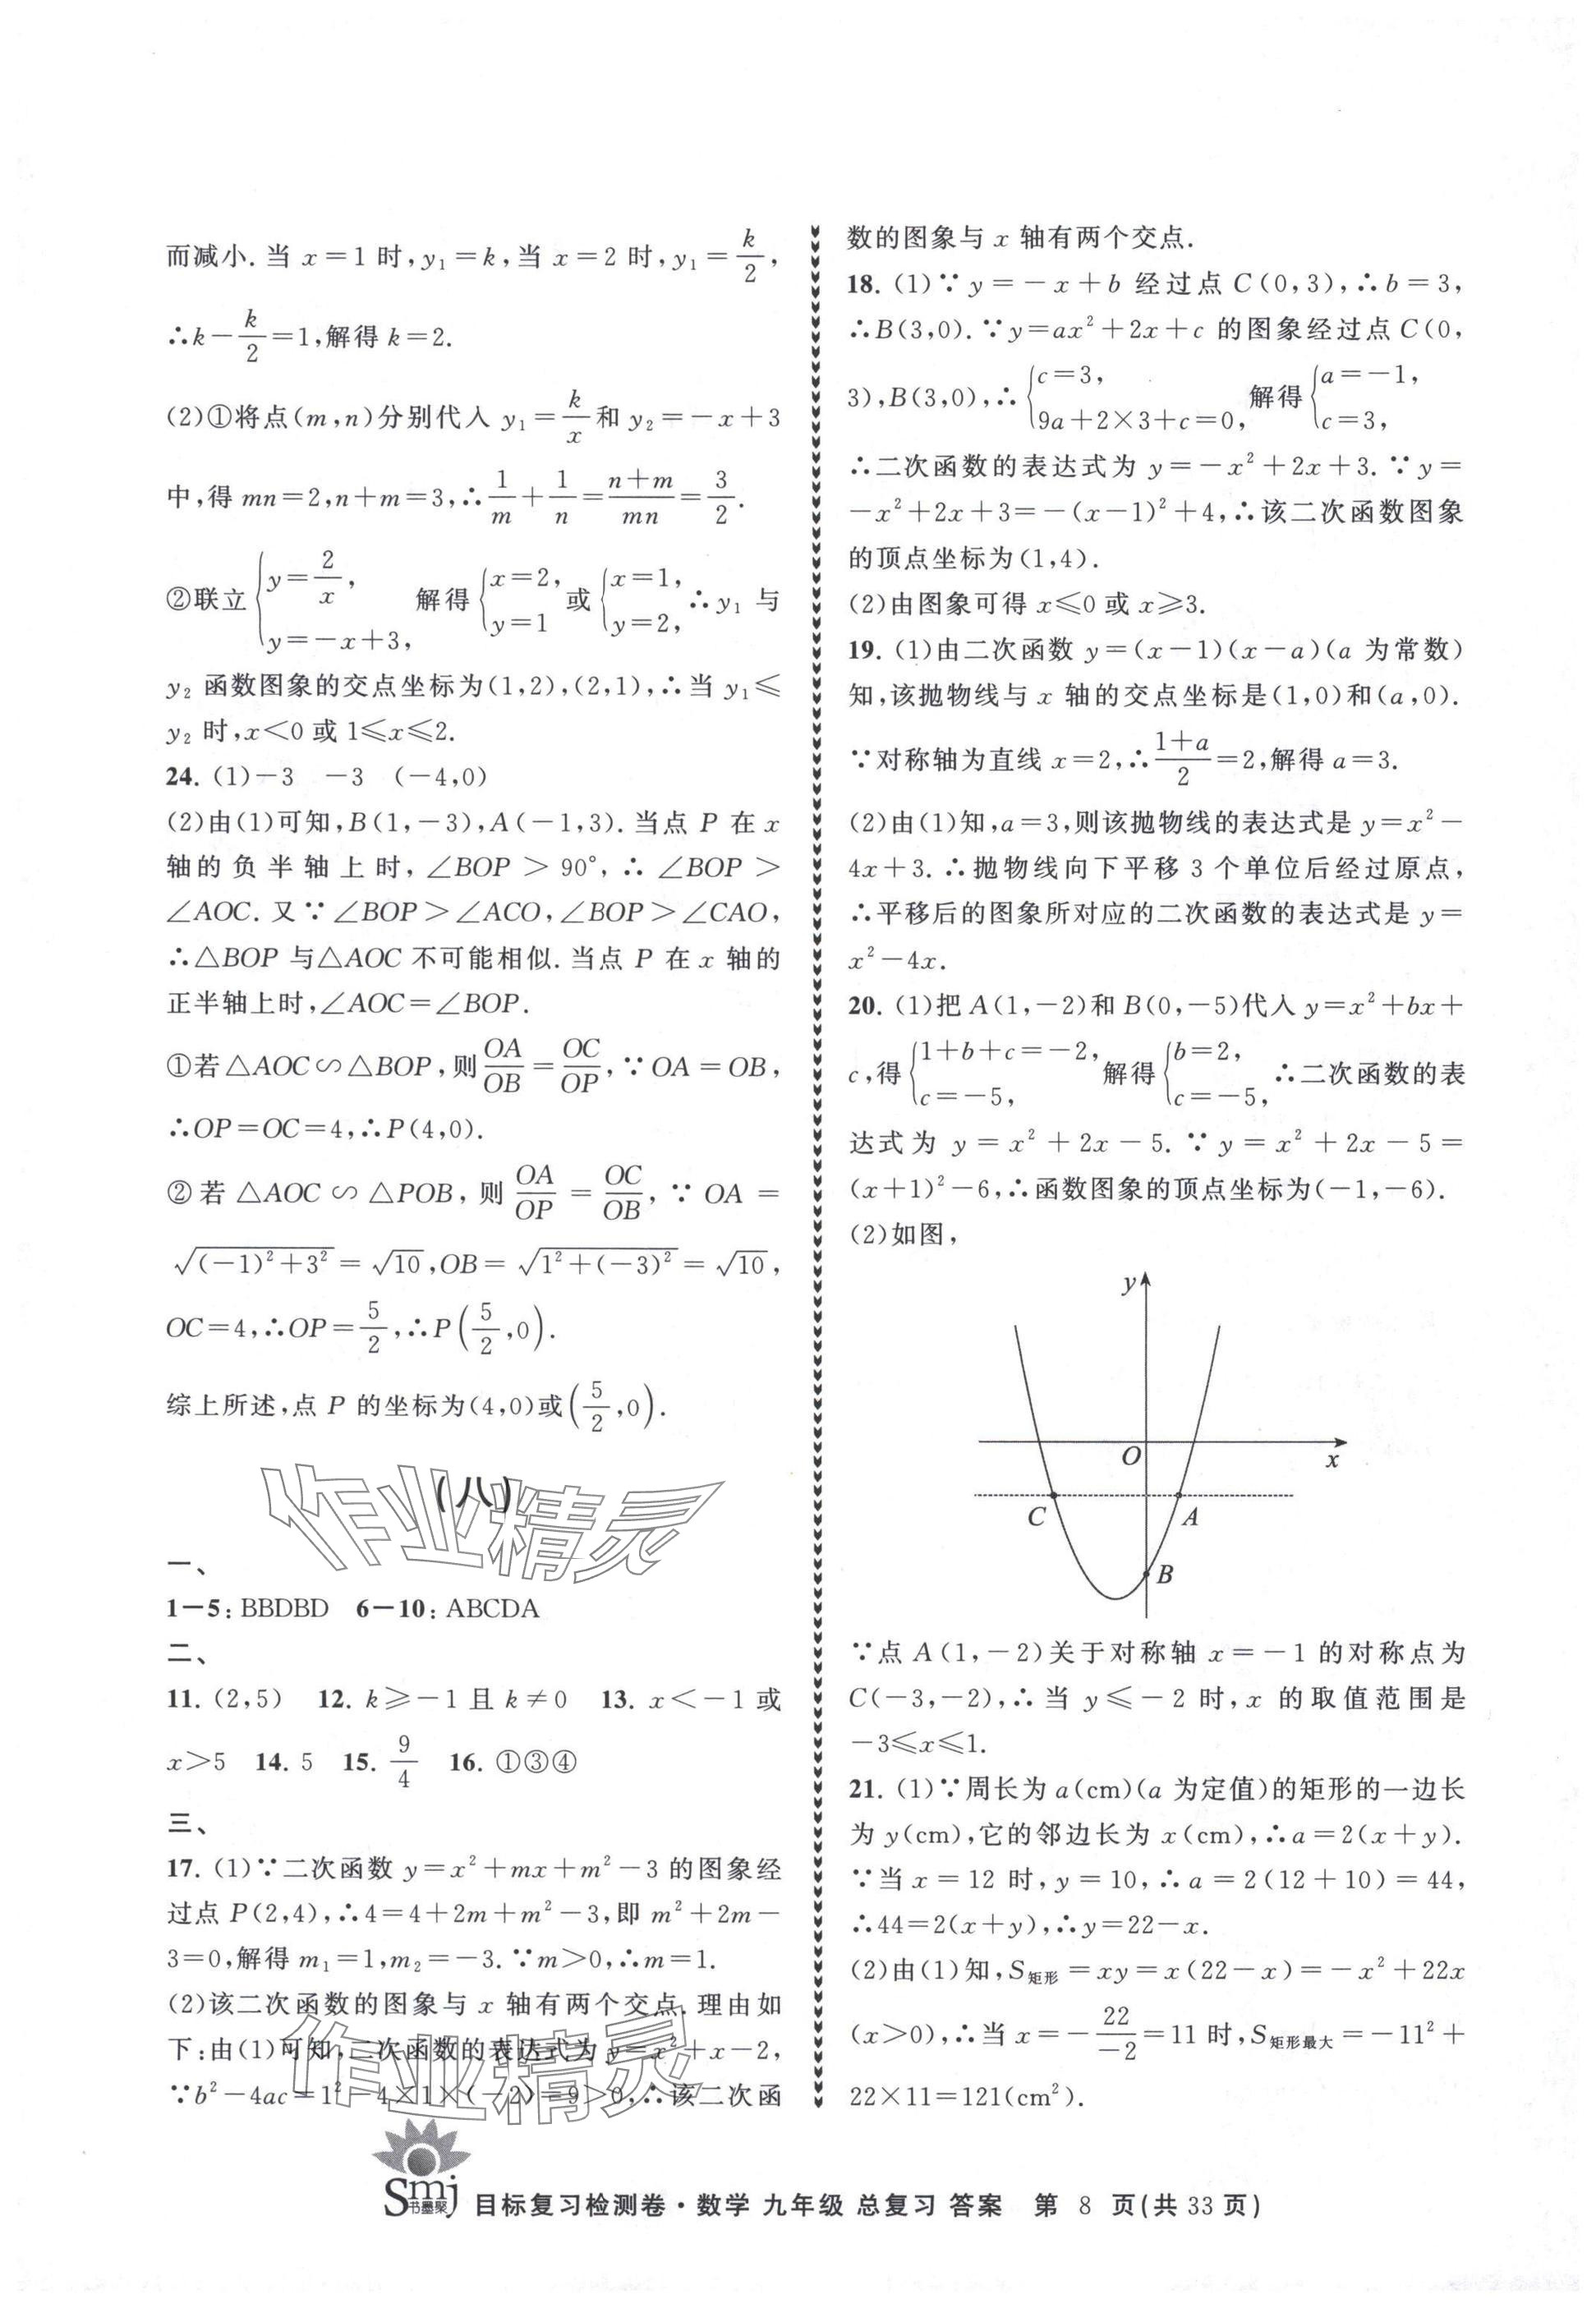 而减小.当 x=1 时,y₁=k,当 x=2 时,y₁=k/2,
∴k-k/2=1,解得 k=2.
(2)①将点(m,n)分别代入 y₁=k/x和 y₂=-x+3
中,得 mn=2,n+m=3,∴1/m+1/n=(n+m)/mn=3/2.
②联立{y=2/x, y=-x+3, 解得{x=2, y=1 或{x=1, y=2, ∴y₁ 与
y₂ 函数图象的交点坐标为(1,2),(2,1),∴当 y₁≤
y₂ 时,x<0 或 1≤x≤2.
24. (1)-3 -3 (-4,0)
(2)由(1)可知,B(1,-3),A(-1,3).当点 P 在 x
轴的负半轴上时,∠BOP>90°,∴∠BOP>
∠AOC.又∵∠BOP>∠ACO,∠BOP>∠CAO,
∴△BOP 与△AOC 不可能相似.当点 P 在 x 轴的
正半轴上时,∠AOC=∠BOP.
①若△AOC∽△BOP,则OA/OB=OC/OP,∵OA=OB,
∴OP=OC=4,∴P(4,0).
②若△AOC∽△POB,则OA/OP=OC/OB,∵OA=
√((-1)²+3²)=√10,OB=√(1²+(-3)²)=√10,
OC=4,∴OP=5/2,∴P(5/2,0).
综上所述,点 P 的坐标为(4,0)或(5/2,0).
(八)
作业精灵
一、
1-5: BBDBD 6-10: ABCDA
二、
11. (2,5) 12. k≥-1 且 k≠0 13. x<-1 或
x>5 14. 5 15. 9/4 16. ①③④
三、
17. (1)∵二次函数 y=x²+mx+m²-3 的图象经
过点 P(2,4),∴4=4+2m+m²-3,即 m²+2m-
3=0,解得 m₁=1,m₂=-3.∵m>0,∴m=1.
(2)该二次函数的图象与 x 轴有两个交点.理由如
下:由(1)可知,二次函数的表达式为 y=x²+x-2,
∵b²-4ac=1²-4×1×(-2)=9>0,∴该二次函
作业精灵
数的图象与 x 轴有两个交点.
18. (1)∵y=-x+b 经过点 C(0,3),∴b=3,
∴B(3,0).∵y=ax²+2x+c 的图象经过点 C(0,
3),B(3,0),∴{c=3, 9a+2×3+c=0, 解得{a=-1, c=3,
∴二次函数的表达式为 y=-x²+2x+3.∵y=
-x²+2x+3=-(x-1)²+4,∴该二次函数图象
的顶点坐标为(1,4).
(2)由图象可得 x≤0 或 x≥3.
19. (1)由二次函数 y=(x-1)(x-a)(a 为常数)
知,该抛物线与 x 轴的交点坐标是(1,0)和(a,0).
∵对称轴为直线 x=2,∴(1+a)/2=2,解得 a=3.
(2)由(1)知,a=3,则该抛物线的表达式是 y=x²-
4x+3.∴抛物线向下平移 3 个单位后经过原点,
∴平移后的图象所对应的二次函数的表达式是 y=
x²-4x.
20. (1)把 A(1,-2)和 B(0,-5)代入 y=x²+bx+
c,得{1+b+c=-2, c=-5, 解得{b=2, c=-5, ∴二次函数的表
达式为 y=x²+2x-5.∵y=x²+2x-5=
(x+1)²-6,∴函数图象的顶点坐标为(-1,-6).
(2)如图,
y
O
x
C
A
B
∵点 A(1,-2)关于对称轴 x=-1 的对称点为
C(-3,-2),∴当 y≤-2 时,x 的取值范围是
-3≤x≤1.
21. (1)∵周长为 a(cm)(a 为定值)的矩形的一边长
为 y(cm),它的邻边长为 x(cm),∴a=2(x+y).
∵当 x=12 时,y=10,∴a=2(12+10)=44,
∴44=2(x+y),∴y=22-x.
(2)由(1)知,S矩形=xy=x(22-x)=-x²+22x
(x>0),∴当 x=-22/-2=11 时,S矩形最大=-11²+
22×11=121(cm²).
Smj
书墨聚
目标复习检测卷·数学 九年级 总复习 答案 第 8 页(共 33 页)